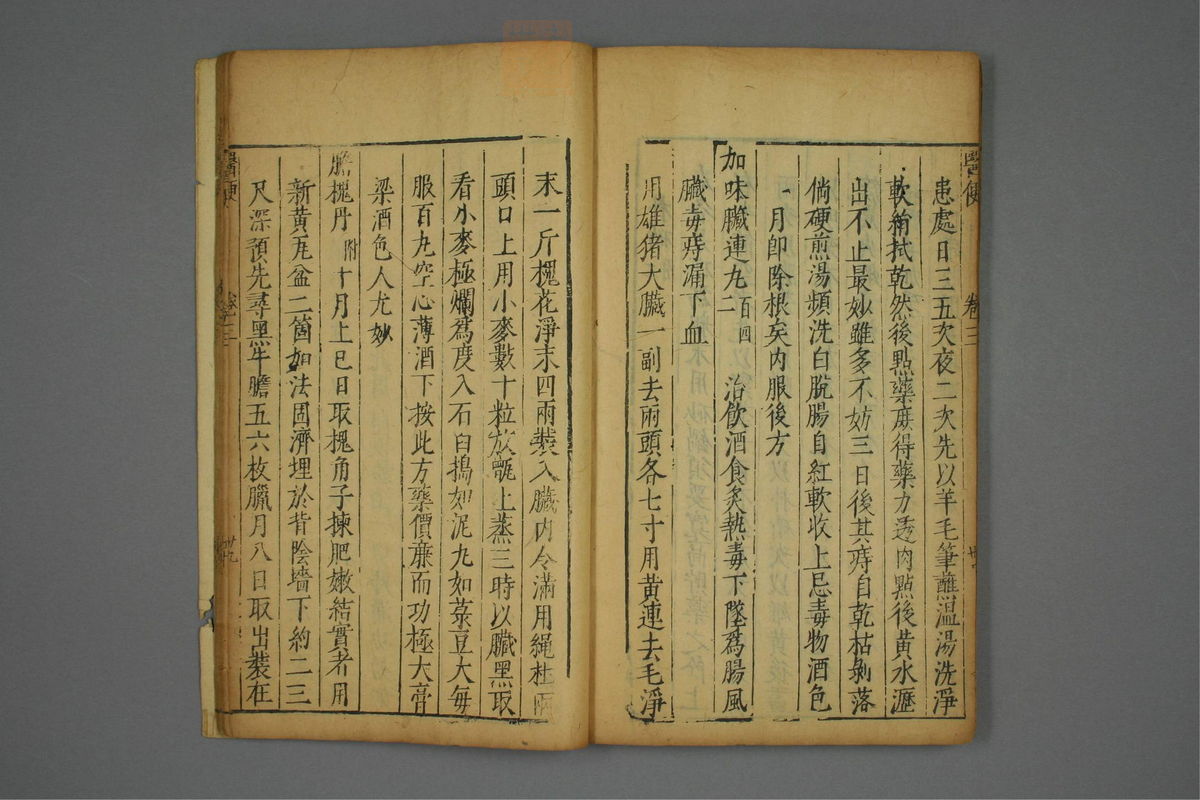 醫便
卷三
患處日三五次夜二次先以羊毛筆蘸溫湯洗淨
軟絹拭乾然後點藥庶得藥力透肉點後黃水瀝
出不止最妙雖多不妨三日後其痔自乾枯剝落
倘硬煎湯頻洗白脫腸自紅軟收上忌毒物酒色
一月卽除根矣內服後方
加味臟連丸二百四 治飮酒食炙熱毒下墜爲腸風
臟毒痔漏下血
用雄猪大臟一副去兩頭各七寸用黃連去毛淨
末一斤槐花淨末四兩裝入臟內令滿用繩柱兩
頭口上用小麥數十粒放甑上蒸三時以臟黑取
看小麥極爛爲度入石臼搗如泥丸如菉豆大每
服百丸空心薄酒下按此方藥價廉而功極大膏
梁酒色人尤妙
膽槐丹附 十月上巳日取槐角子揀肥嫩結實者用
新黃瓦盆二箇如法固濟埋於背陰墻下約二三
尺深預先尋黑牛膽五六枚臘月八日取出裝在
醫便
卷三
廿九